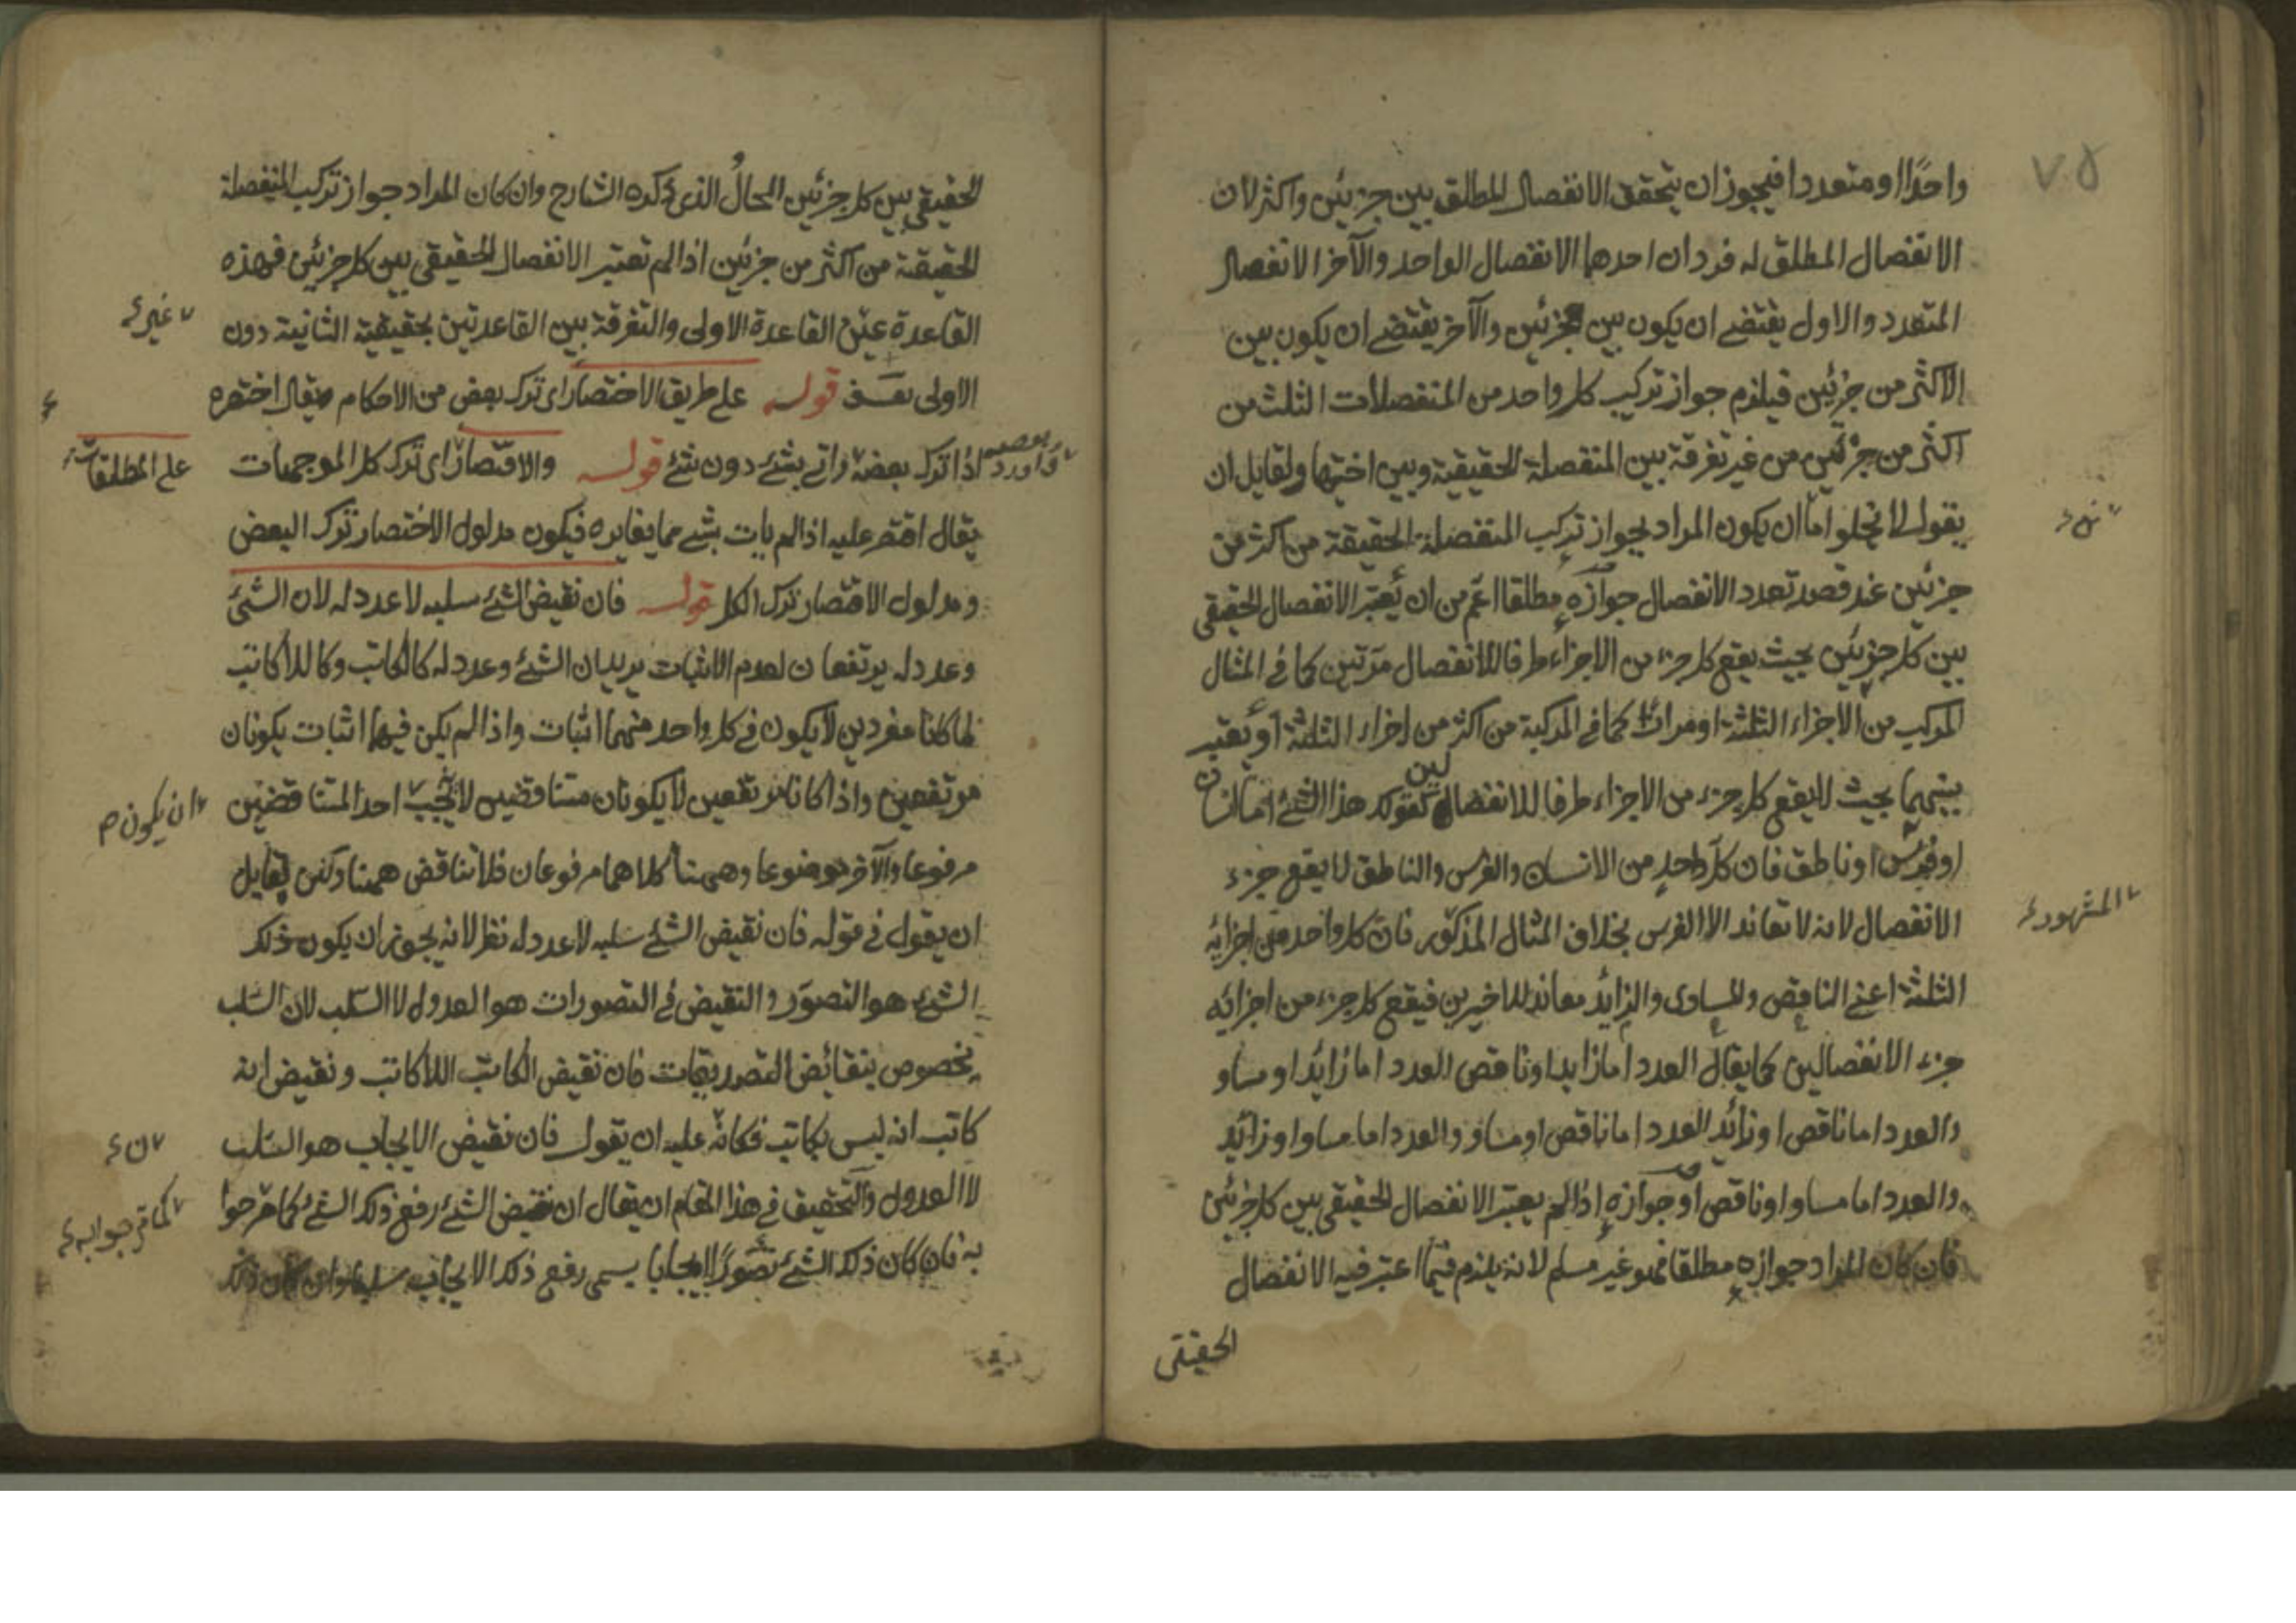 ٧٥
واحدًا او متعددا فيجوز ان يتحقق الانفصال المطلق بين جزئين واكثر لان
الانفصال المطلق له فردان احدهما الانفصال الواحد والآخر الانفصال
المتعدد والاول يقتضے ان يكون بين جزئين والآخر يقتضے ان يكون بين
الاكثر من جزئين فيلزم جواز تركيب كل واحد من المنفصلات الثلث من
اكثر من جزئين من غير تفرقة بين المنفصلة الحقيقية وبين اختيها ولقايل ان
يقول لا يخلو اما ان يكون المراد بجواز تركيب المنفصلة الحقيقة من اكثر من
جزئين عند قصد تعدد الانفصال جوازه مطلقا اعم من ان يُعتبر الانفصال الحقيقى
بين كل جزئين بحيث يقع كل جزء من الاجزاء طرفا للانفصال مرّتين كما فى المثال
المركب من الاجزاء الثلثة او مرات كما فى المركبة من اكثر من اجزاء الثلثة او يعتبر
بينهما بحيث لا يقع كل جزء من الاجزاء طرفا للانفصالين كقولك هذا الشئ اما انسان
او فرس او ناطق فان كل واحد من الانسان والفرس والناطق لا يقع جزء
الانفصال لانه لا تعاند الا الفرس بخلاف المثال المذكور فان كل واحد من اجزايه
المشهور
الثلثة اعنے الناقص والمساوى والزايد معاند للاخيرين فيقع كل جزء من اجزائه
جزء الانفصالين كما يقال العدد اما زايد او ناقص العدد اما زايد او مساو
والعدد اما ناقص او زائد العدد اما ناقص او مساو والعدد اما مساو او زائد
والعدد اما مساو او ناقص او جوازه اذا لم يعتبر الانفصال الحقيقى بين كل جزئين
فان كان المراد جوازه مطلقا فهو غير مسلم لانه يلزم فيما اعتبر فيه الانفصال
الحقيقى
الحقيقى بين كل جزئين المحالُ الذى ذكره الشارح وان كان المراد جواز تركيب المنفصلة
الحقيقة من اكثر من جزئين اذا لم تعتبر الانفصال الحقيقى بين كل جزئين فهذه
القاعدة عين القاعدة الاولى والتفرقة بين القاعدتين بحقيقية الثانية دون
غير
الاولى تعسّف قوله على طريق الاختصار اى ترك بعض من الاحكام يقال اختصره
اذا ترك بعضه واتے بشئ دون شئ قوله والاقتصار اى ترك كل الموجهات
على المطلقات
يقال اقتصر عليه اذا لم يات بشئ مما يغايره فيكون مدلول الاختصار ترك البعض
ومدلول الاقتصار ترك الكل قوله فان نقيض الشئ سلبه لا عدد له لان الشئ
وعدد له يرتفعان لعدم الاثبات يريد ان الشئ وعدد له كالكاتب وكاللاكاتب
لما كانا مفردين لا يكون فى كل واحد منهما اثبات واذا لم يكن فيهما اثبات يكونان
مرتفعين واذا كانا مرتفعين لا يكونان متناقضين لا يجب احد المتناقضين
ان يكون
مرفوعا والآخر موضوعا وههنا كلاهما مرفوعان فلا تناقض ههنا ولكن لقايل
ان يقول فى قوله فان نقيض الشئ سلبه لا عدد له نظر لانه يجوز ان يكون ذلك
الشئ هو التصور والنقيض فى التصورات هو العدول لا السّلب لان السّلب
مخصوص بنقائض التصديقات فان نقيض الكاتب اللاكاتب ونقيض انه
كاتب انه ليس بكاتب فكانّه عليه ان يقول فان نقيض الايجاب هو السّلب
لا العدول والتحقيق فى هذا المقام ان يقال ان نقيض الشئ رفع ذلك الشئ كما صرحوا
به فان كان ذلك الشئ تصورًا ايجابا يسمى رفع ذلك الايجاب سلبا وان كان ذلك